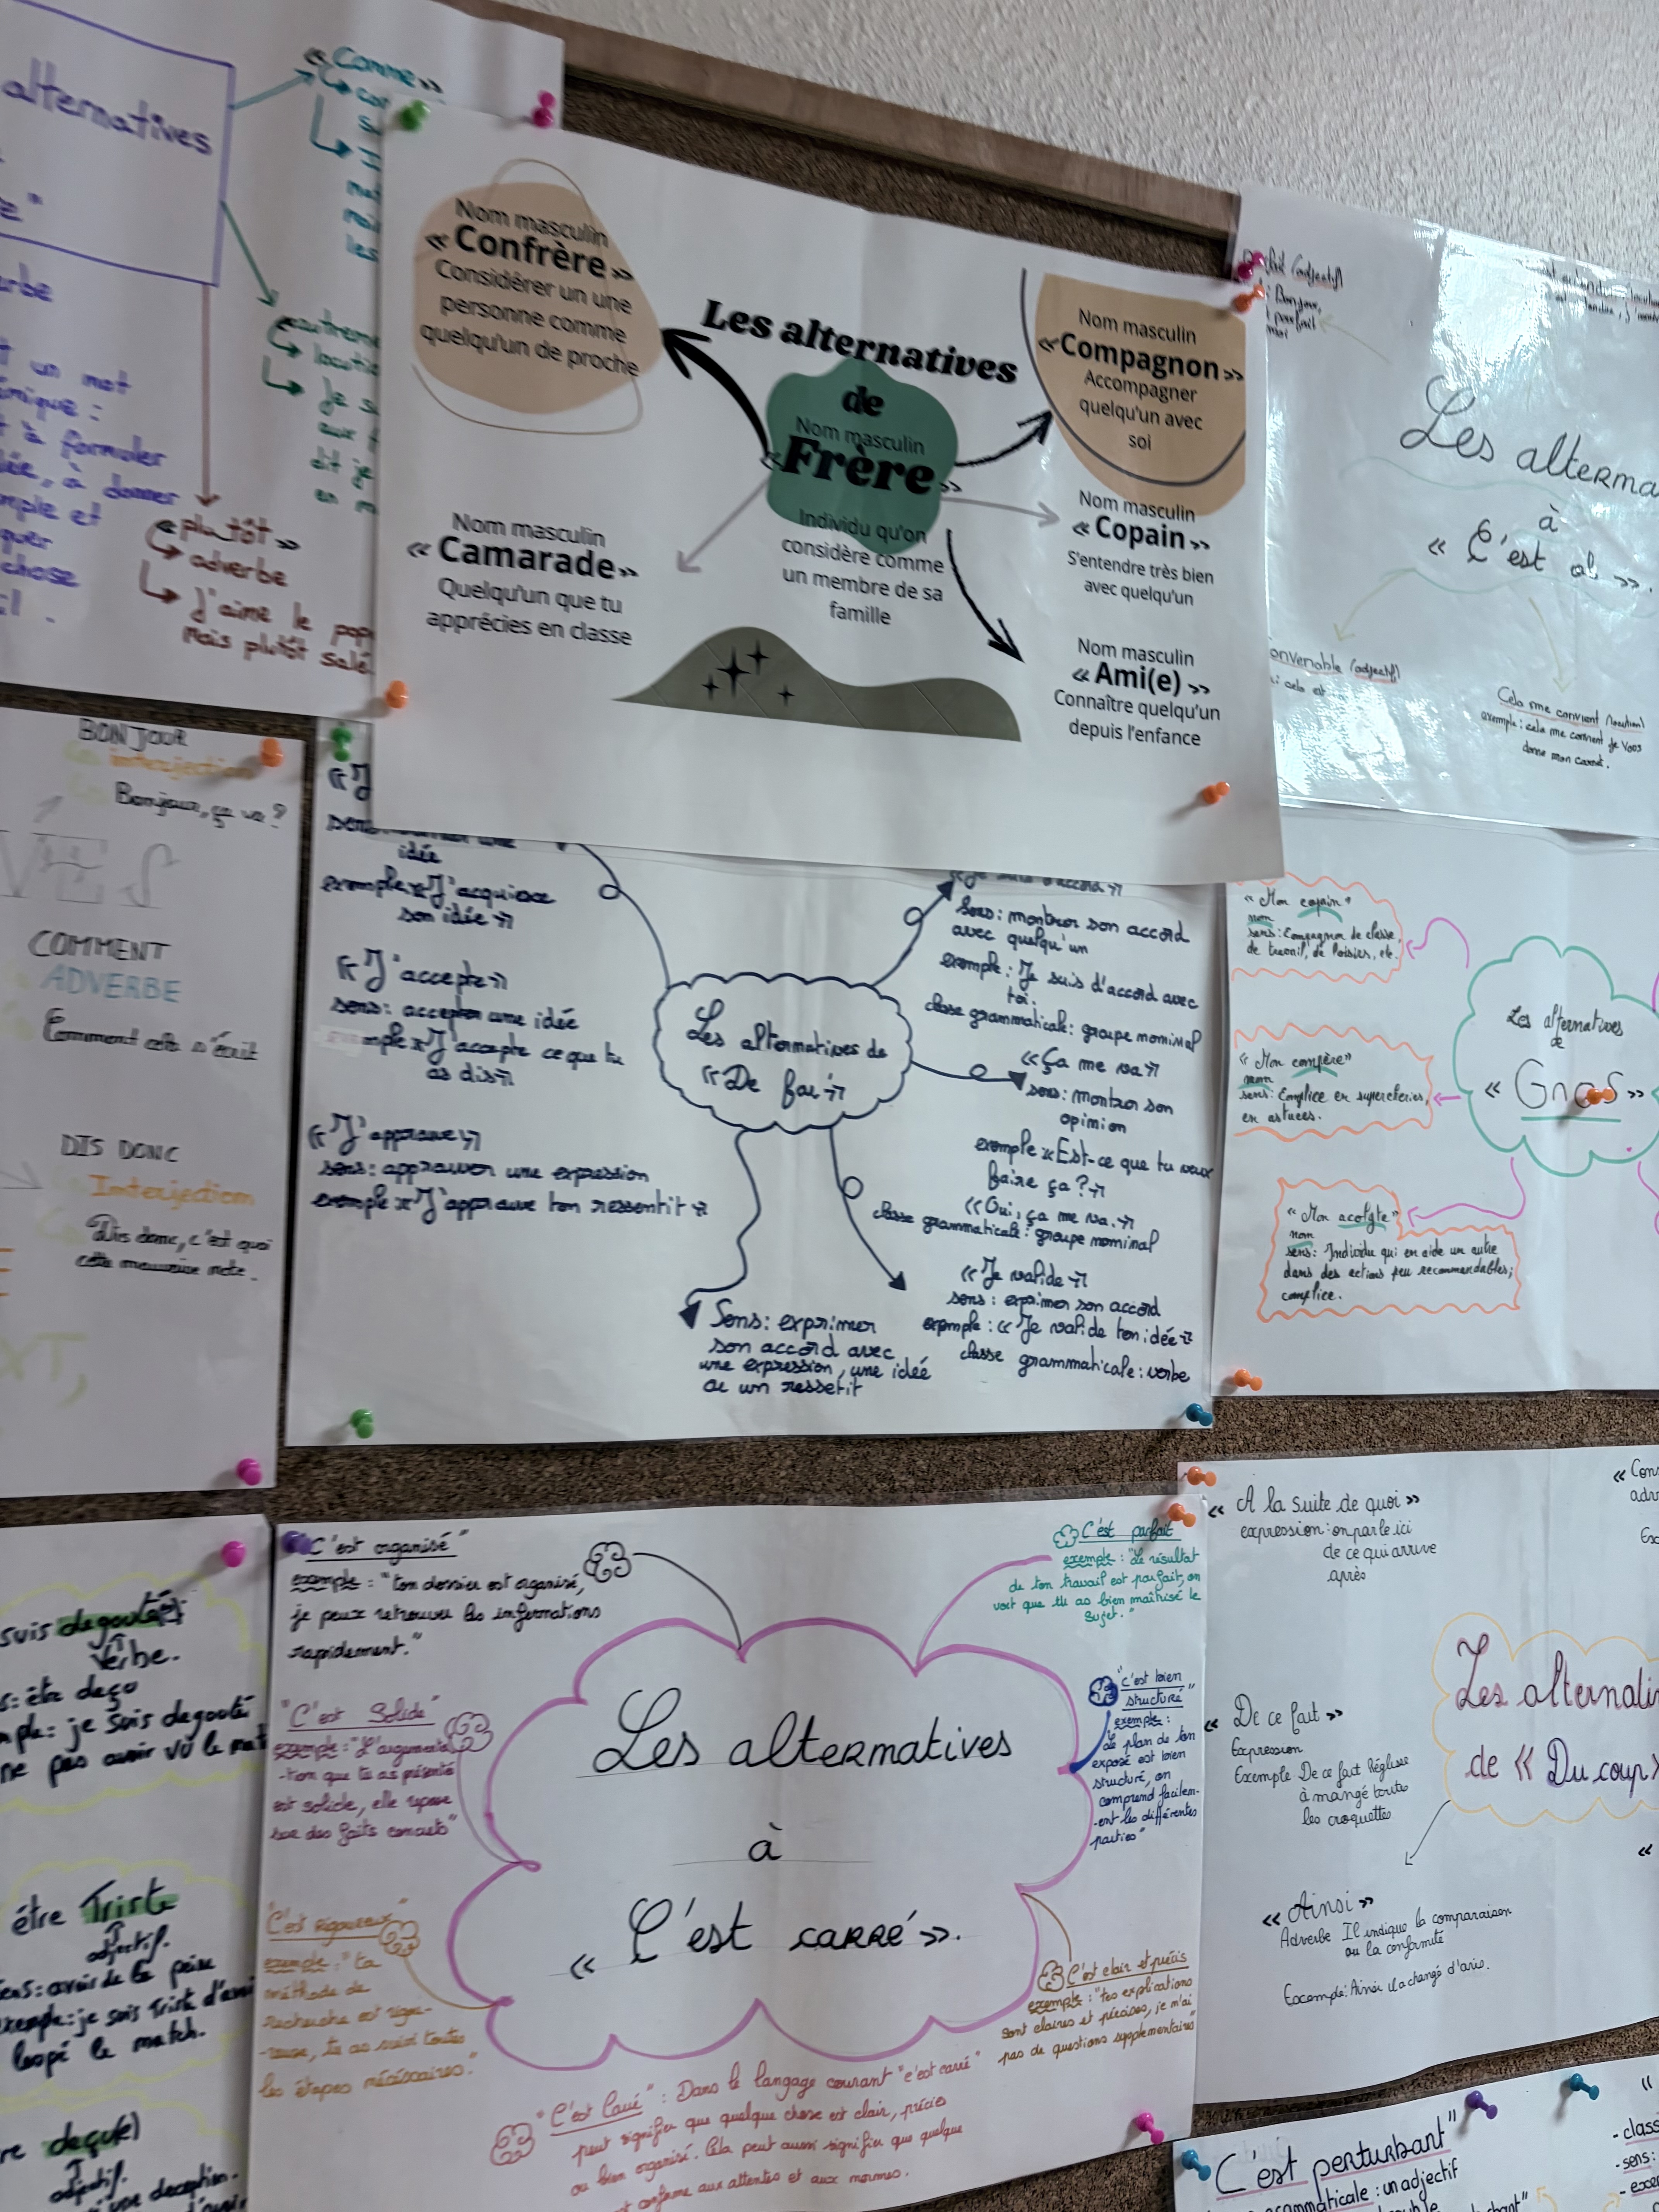 alternatives
« Comme »
"
« autrement
↳ locution
↳ Je s
dit je
un mot
à formuler
à donner
et
chose
« plutôt »
↳ adverbe
↳ J'aime le pop
mais plutôt salé
Nom masculin
« Confrère »
Considérer un une
personne comme
quelqu'un de proche
Les alternatives
de
Nom masculin
«Frère»
Individu qu'on
considère comme
un membre de sa
famille
Nom masculin
«Compagnon»
Accompagner
quelqu'un avec
soi
Nom masculin
« Camarade»
Quelqu'un que tu
apprécies en classe
Nom masculin
« Copain »
S'entendre très bien
avec quelqu'un
Nom masculin
« Ami(e) »
Connaître quelqu'un
depuis l'enfance
(adjectif)
Bonjour,
parfait
Les alterna
à
« C'est ok ».
onvenable (adjectif)
: cela est
Cela me convient (locution)
exemple : cela me convient je vous
donne mon carnet.
BONJOUR
interjection
Bonjour, ça va ?
COMMENT
ADVERBE
Comment cela s'écrit
DIS DONC
Interjection
Dis donc, c'est quoi
cette mauvaise note.
« J
sens
idée
exemple « J'acquiesce
son idée »
« J'accepte »
sens : accepter une idée
exemple « J'accepte ce que tu
as dis »
« J'approuve »
sens : approuver une expression
exemple « J'approuve ton ressentit »
Les alternatives de
« De fou »
Sens : exprimer
son accord avec
une expression, une idée
ou un ressetit
« Je suis d'accord »
Sens : montrer son accord
avec quelqu'un
exemple : Je suis d'accord avec
toi.
classe grammaticale : groupe nominal
« Ça me va »
sens : montrer son
opinion
exemple « Est-ce que tu veux
faire ça ? »
« Oui, ça me va. »
classe grammaticale : groupe nominal
« Je valide »
sens : exprimer son accord
exemple : « Je valide ton idée »
classe grammaticale : verbe
« Mon copain »
nom
sens : Compagnon de classe,
de travail, de loisirs, etc.
« Mon confère »
nom
sens : Complice en supercheries,
en astuces.
« Mon acolyte »
nom
sens : Individu qui en aide un autre
dans des actions peu recommandables;
complice.
Les alternatives
de
« Gnas »
suis degouté
Verbe.
: être deçu
: je suis degouté
ne pas avoir vu le mat
être Triste
adjectif.
sens : avoir de la peine
exemple : je suis Triste d'avoi
loupé le match.
deçu(e)
adjectif.
une deception.
"C'est organisé"
exemple : "ton dossier est organisé,
je peux retrouver les infornations
rapidement."
"C'est Solide"
exemple : "L'argumenta
-tion que tu as présenté
est solide, elle repose
sur des faits concrets"
"C'est rigoureux"
exemple : "ta
méthode de
recherche est rigou-
-reuse, tu as suivi toutes
les étapes nécéssaires."
Les alternatives
à
« C'est carré ».
C'est parfait
exemple : "Le résultat
de ton travail est parfait, on
voit que tu as bien maîtrisé le
sujet."
"c'est bien
structuré"
exemple :
"Le plan de ton
exposé est bien
structuré, on
comprend facilem-
-ent les différentes
parties"
C'est clair et précis
exemple : "tes explications
sont claires et précises, je n'ai
pas de questions supplémentaires"
"C'est Carré" : Dans le langage courant "c'est carré"
peut signifier que quelque chose est clair, précis
ou bien organisé. Cela peut aussi signifier que quelque
conforme aux attentes et aux normes.
« A la suite de quoi »
expression : on parle ici
de ce qui arrive
après
« De ce fait »
Expression
Exemple De ce fait Réglisse
à mangé toutes
les croquettes
« Ainsi »
Adverbe Il indique la comparaison
ou la conformité
Exemple : Ainsi il a changé d'avis.
Les alternati
de « Du coup »
C'est perturbant"
grammaticale : un adjectif
- class
- sens :
- exe